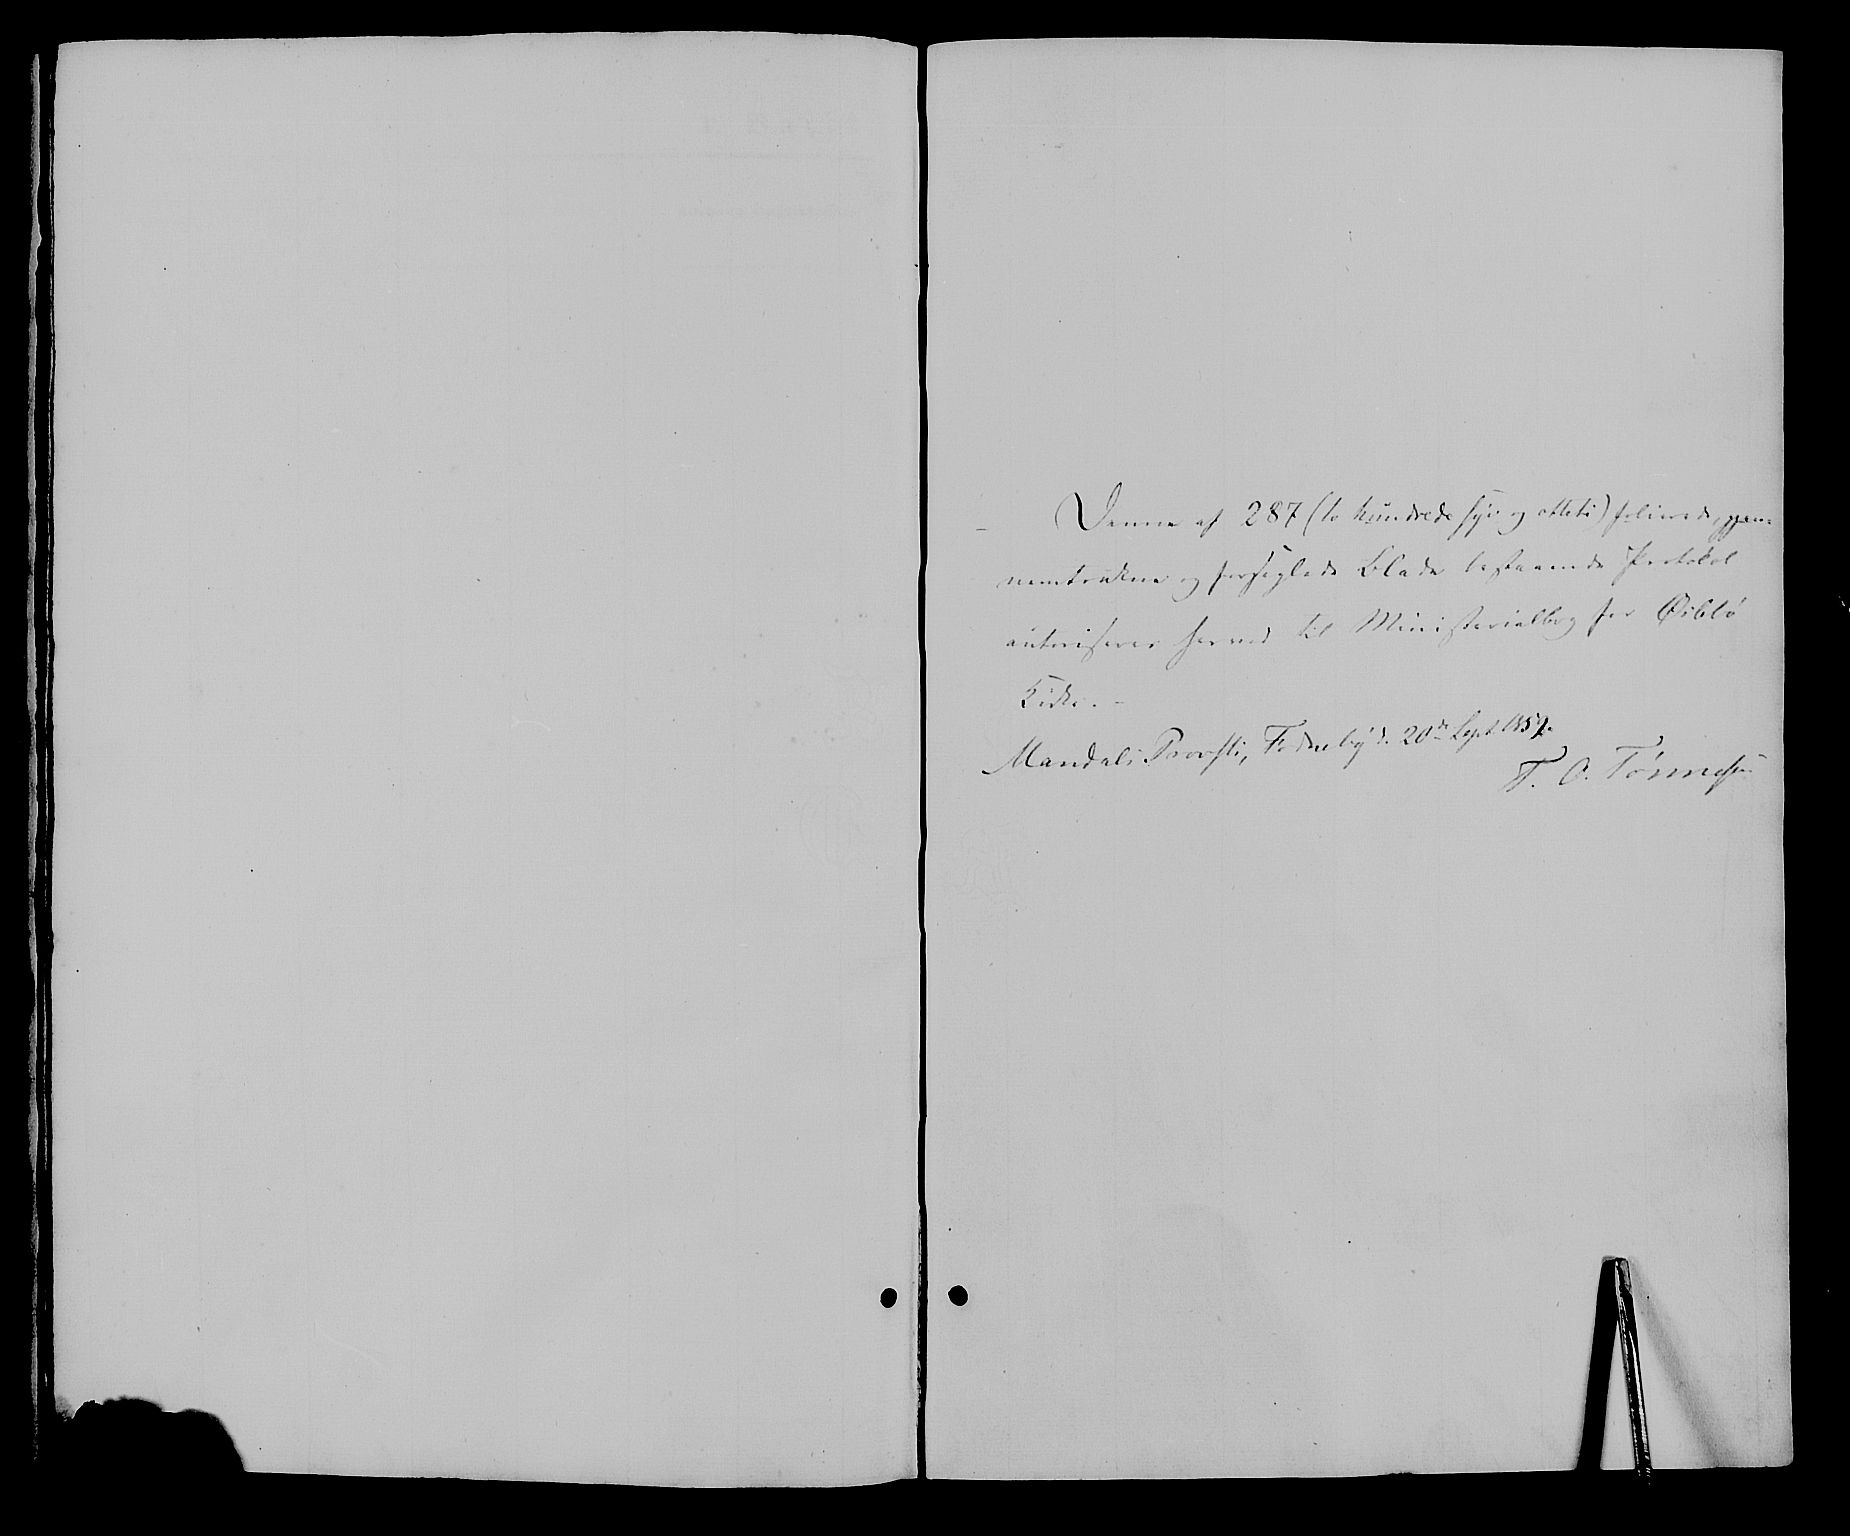 Denne af 287 (to hundrede syv og otteti) folierede, gjen-
nemtrukne og forseglede Blade bestaaende Protokol
autoriseres herved til Ministerialbog for Øislø
Kirke. -
Mandals Provsti, d. 20de Sept 1859.
T. O. Tønnesen